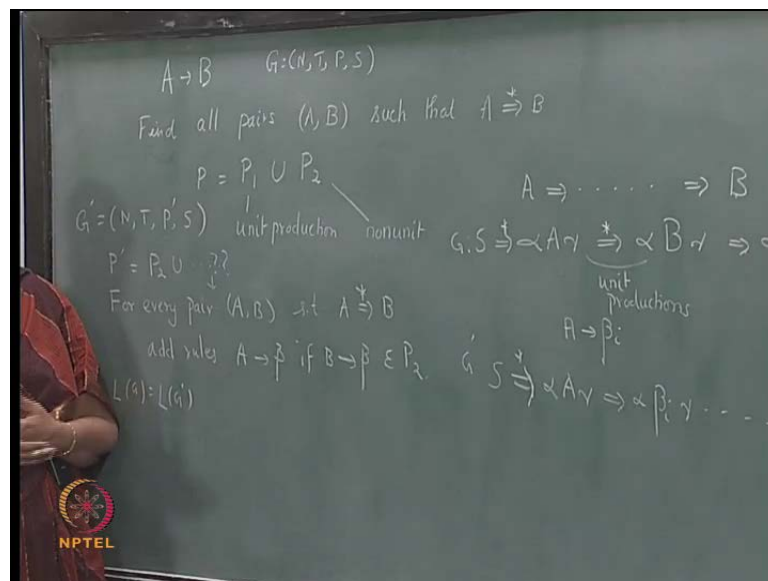 A → B G:(N,T,P,S)
Find all pairs (A,B) such that A *⇒ B
P = P₁ ∪ P₂
unit production nonunit
G'=(N,T,P',S)
P' = P₂ ∪ ...??
↓
For every pair (A,B) s.t A *⇒ B
add rules A→β if B→β ε P₂.
L(G)=L(G')
A ⇒ ..... ⇒ B
G: S *⇒ αAγ *⇒ αBγ ⇒
unit
productions
A → βᵢ
G' S *⇒ αAγ ⇒ αβᵢγ ....
NPTEL